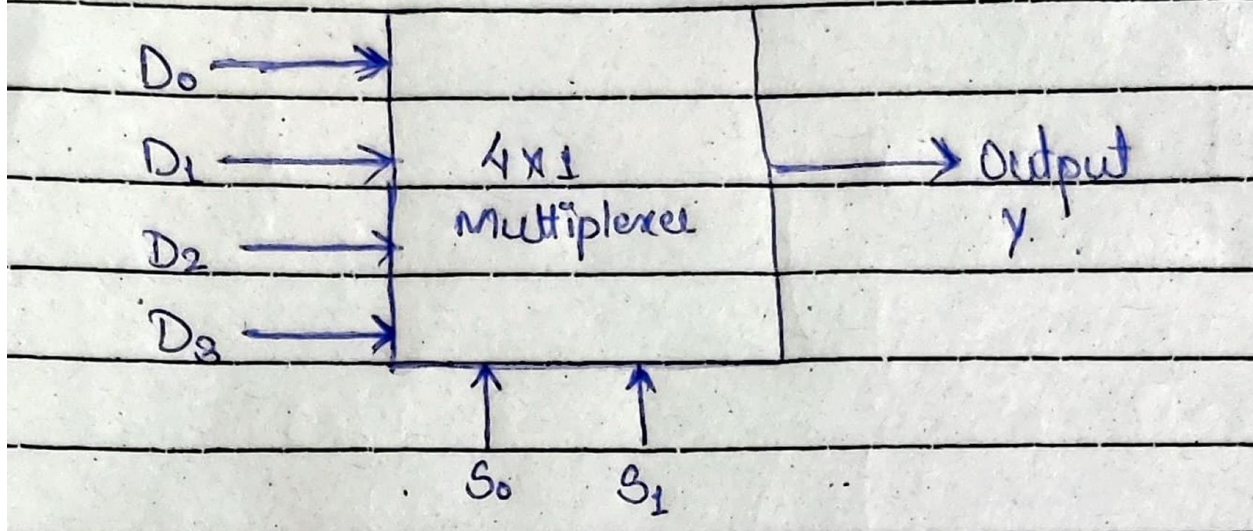 D0
D1
D2
D3
4x1
Multiplexer
Output
Y.
S0 S1